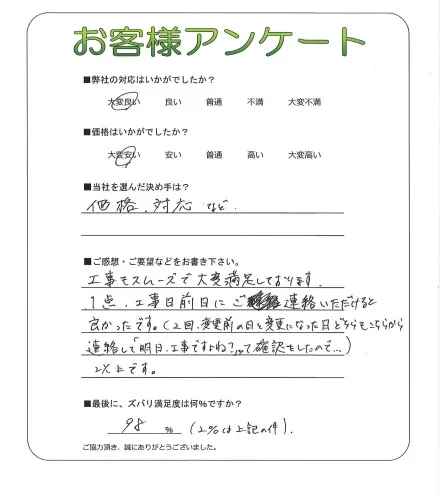 お客様アンケート
■弊社の対応はいかがでしたか？
大変良い 良い 普通 不満 大変不満
■価格はいかがでしたか？
大変安い 安い 普通 高い 大変高い
■当社を選んだ決め手は？
価格、対応 など.
■ご感想・ご要望などをお書き下さい。
工事もスムーズで大変満足しております.
1点、工事日前日にご連絡いただけると
良かったです。(2回、変更前の日と変更になった日どちらもこちらから
連絡して「明日、工事ですよね?」って確認をしたので…)
以上です。
■最後に、ズバリ満足度は何%ですか？
98 % (2%は上記の件).
ご協力頂き、誠にありがとうございました。